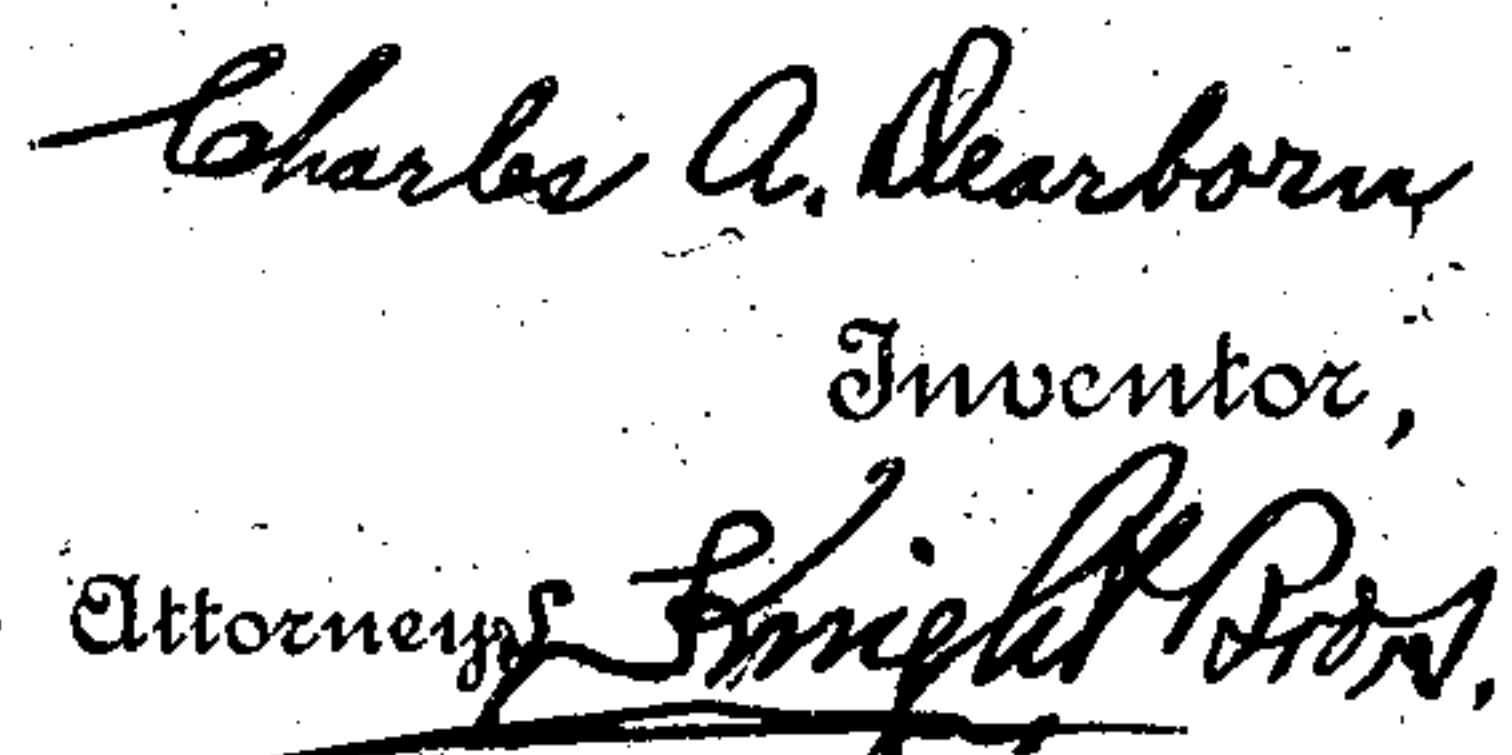 Charles A. Dearborn,
Inventor,
Attorneys Knight Bros.